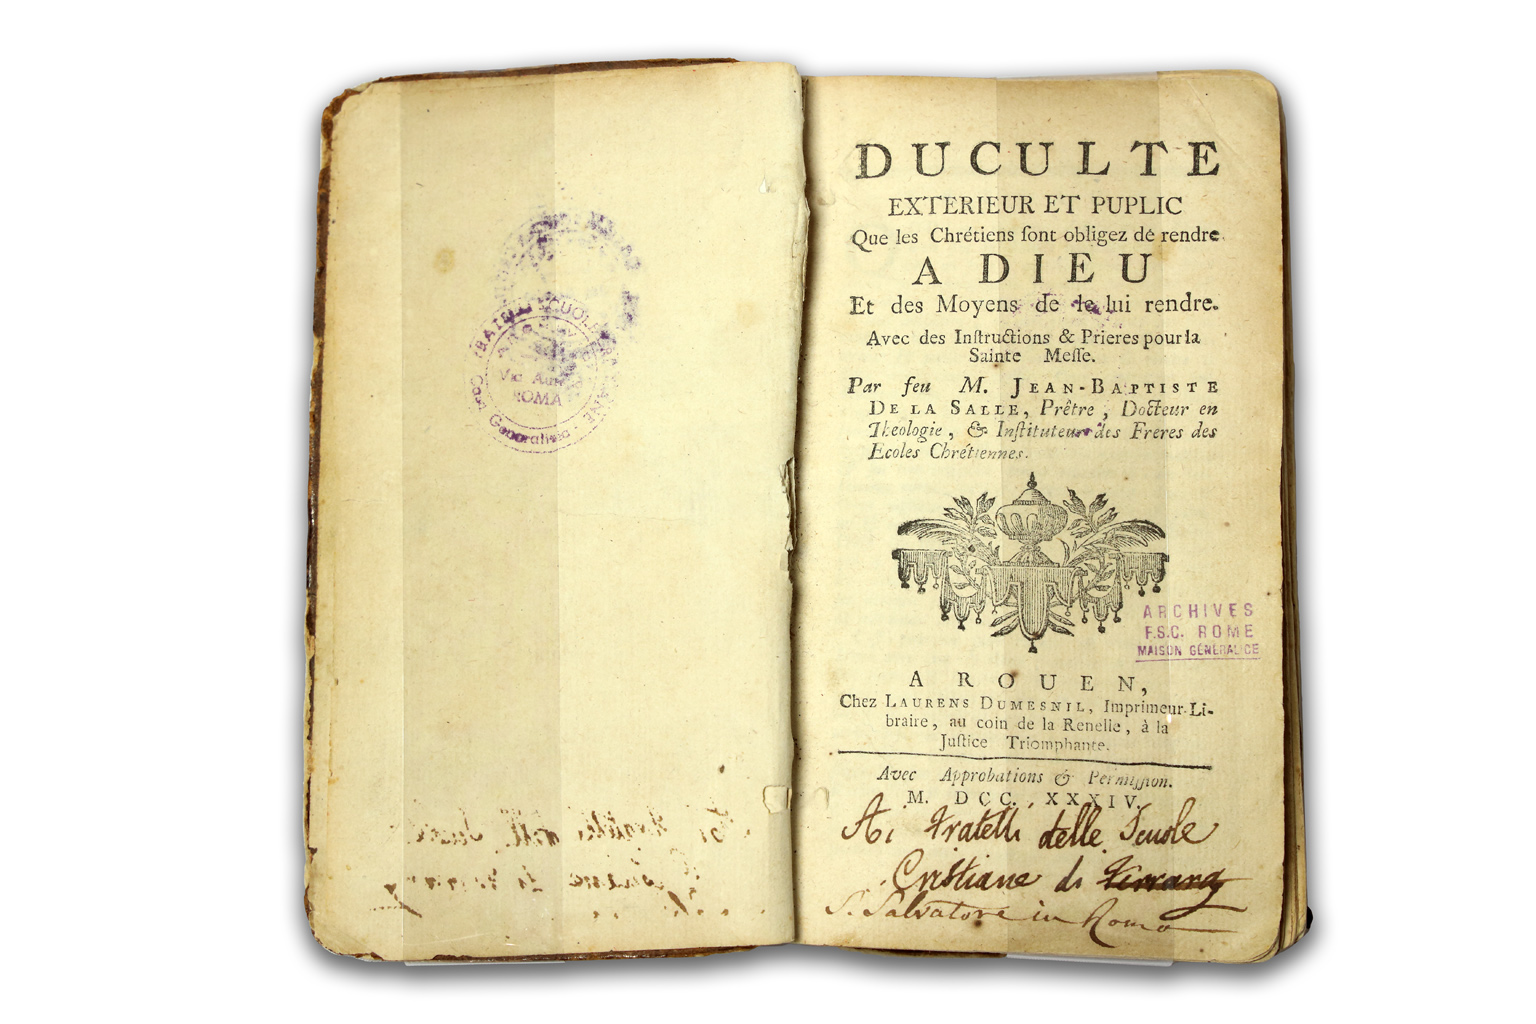 FRATELLI SCUOLE
Via Aurelia
ROMA
Casa Generalizia
DU CULTE
EXTERIEUR ET PUPLIC
Que les Chrétiens ſont obligez de rendre
A DIEU
Et des Moyens de le lui rendre.
Avec des Inſtructions & Prieres pour la
Sainte Meſſe.
Par feu M. JEAN-BAPTISTE
DE LA SALLE, Prêtre, Docteur en
Theologie, & Inſtituteur des Freres des
Ecoles Chrétiennes.
ARCHIVES
F.S.C. ROME
MAISON GÉNÉRALICE
A ROUEN,
Chez LAURENS DUMESNIL, Imprimeur-Li-
braire, au coin de la Renelle, à la
Juſtice Triomphante.
Avec Approbations & Permiſſion.
M. DCC. XXXIV.
Ai Fratelli delle Scuole
Cristiane di
S. Salvatore in Roma